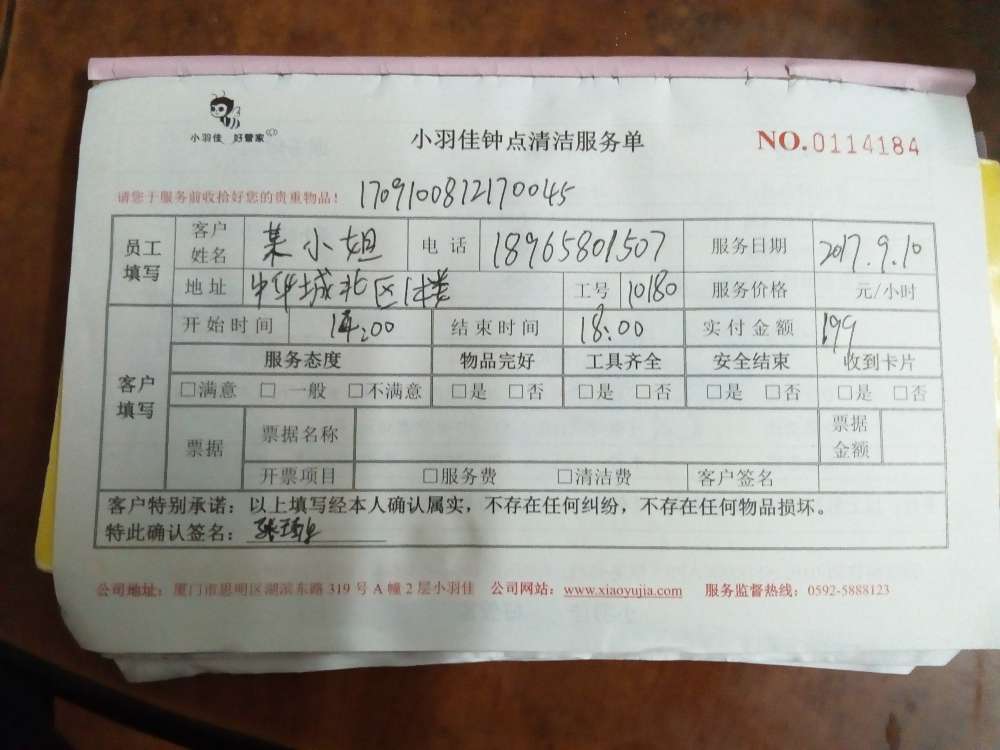 小羽佳 好管家
小羽佳钟点清洁服务单
NO.0114184
请您于服务前收拾好您的贵重物品! 1709100812170045
员工填写 客户姓名 某小姐 电话 18965801507 服务日期 2017.9.10
地址 中华城北区 工号 10180 服务价格 元/小时
客户填写 开始时间 14:00 结束时间 18:00 实付金额 199
服务态度 物品完好 工具齐全 安全结束 收到卡片
□满意 □一般 □不满意 □是 □否 □是 □否 □是 □否 □是 □否
票据 票据名称 票据金额
开票项目 □服务费 □清洁费 客户签名
客户特别承诺：以上填写经本人确认属实，不存在任何纠纷，不存在任何物品损坏。
特此确认签名：
公司地址：厦门市思明区湖滨东路 319 号 A 幢 2 层小羽佳 公司网站：www.xiaoyujia.com 服务监督热线：0592-5888123